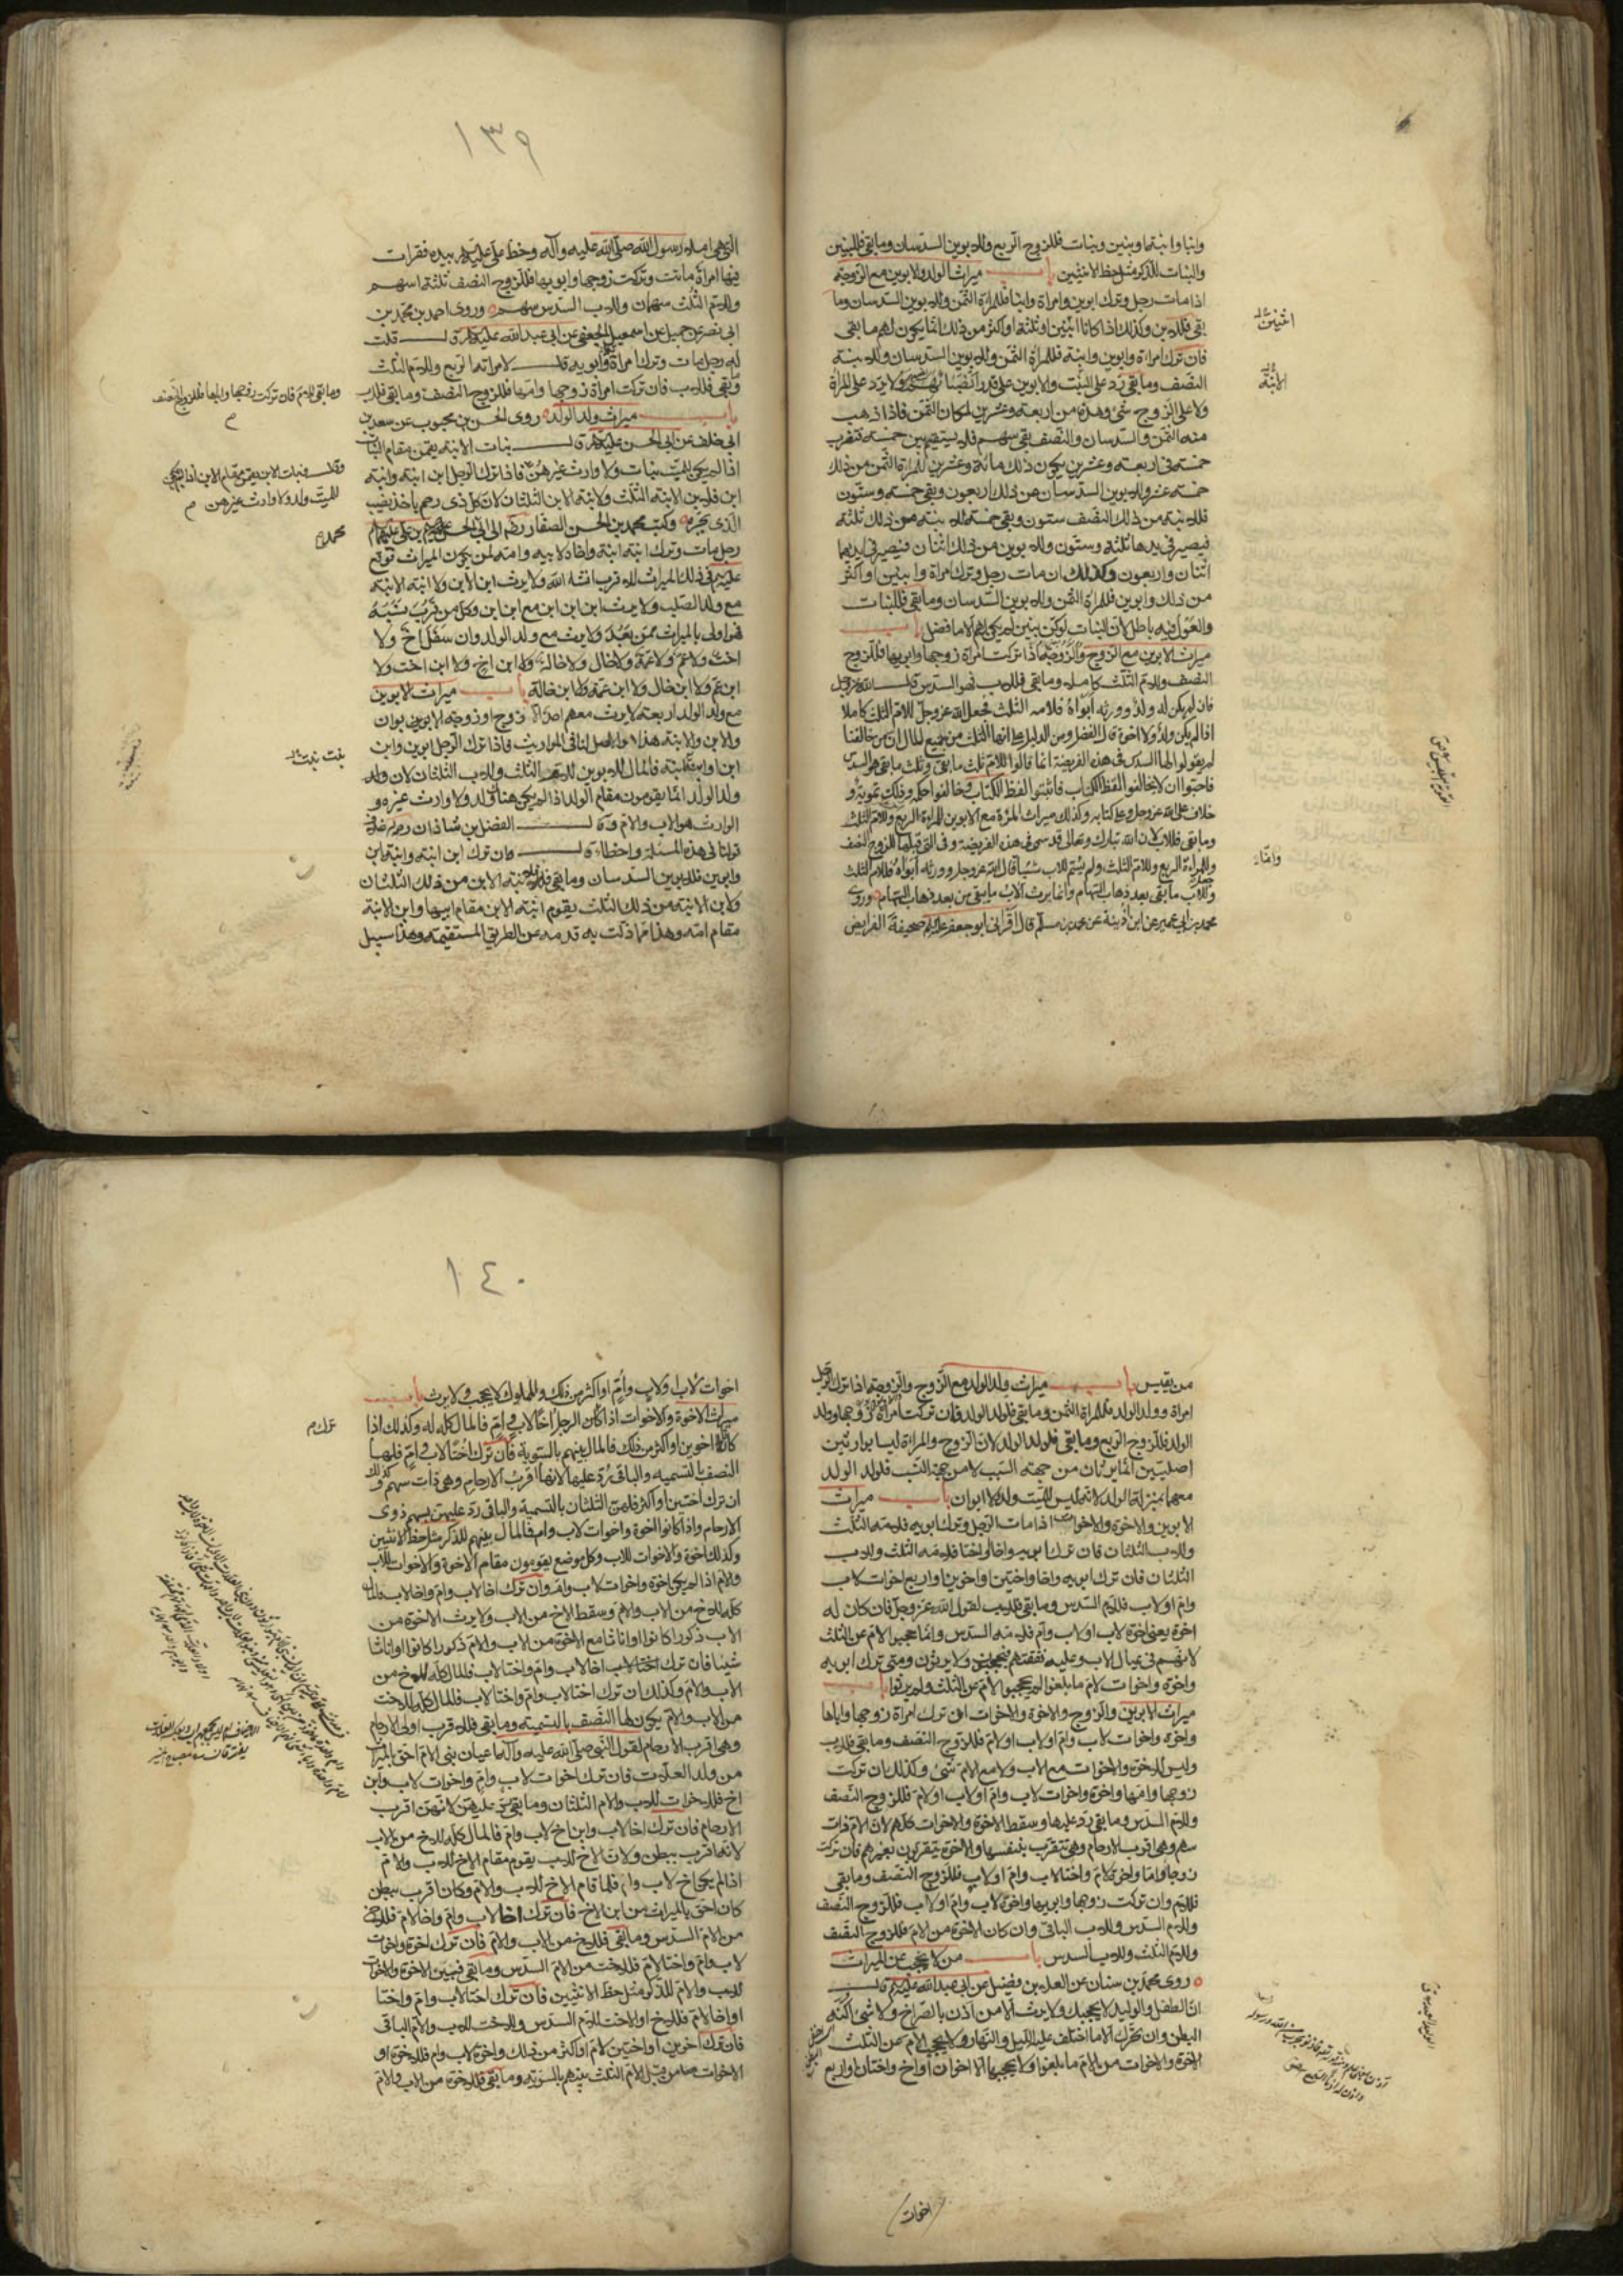 وابنا وابنة او بنين وبنات فللزوج الربع وللابوين السدسان وما بقي فللبنين
والبنات للذكر مثل حظ الانثيين باب ميراث الولد والابوين مع الزوجة
اذا مات رجل وترك ابوين وامراة وابنا فللمراة الثمن وللابوين السدسان وما
بقي فللابن وكذلك اذا كانا اثنين او ثلثة او اكثر من ذلك انما يكون لهم ما بقي
فان ترك امراة وابوين وابنة فللمراة الثمن وللابوين السدسان وللابنة
النصف وما بقي رد على البنت والابوين على قدر انصبائهم ولا يرد على المراة
ولا على الزوج شئ وهذه من اربعة وعشرين لمكان الثمن فاذا ذهب
منه الثمن والسدسان والنصف بقي سهم فلا يستقيم بين خمسة فتضرب
خمسة في اربعة وعشرين يكون ذلك مائة وعشرين للمراة الثمن من ذلك
خمسة عشر وللابوين السدسان من ذلك اربعون وبقي خمسة وستون
فللابنة من ذلك النصف ستون وبقي خمسة للابنة من ذلك ثلثة
فيصير في يدها ثلثة وستون وللابوين من ذلك اثنان فيصير في ايديهما
اثنان واربعون وكذلك ان مات رجل وترك امراة وابنتين او اكثر
من ذلك وابوين فللمراة الثمن وللابوين السدسان وما بقي فللبنات
والعول فيه باطل لان البنات لو كن بنين لم يكن لهم الا ما فضل باب
ميراث الابوين مع الزوج والزوجة اذا تركت امراة زوجها وابويها فللزوج
النصف وللام الثلث كاملا وما بقي فللاب فهو السدس قال الله عز وجل
فان لم يكن له ولد وورثه ابواه فلامه الثلث فجعل الله عز وجل للام الثلث كاملا
اذا لم يكن ولد ولا اخوة قال الفضل ومن الدليل على ان لها الثلث من جميع المال ان من خالفنا
لم يقولوا لها السدس في هذه الفريضة انما قالوا للام ثلث ما بقي وثلث ما بقي هو السدس
فاحبوا ان لا يخالفوا لفظ الكتاب فاثبتوا لفظ الكتاب وخالفوا حكمه وذلك تمويه و
خلاف على الله عز وجل وعلى كتابه وكذلك ميراث المراة مع الابوين للمراة الربع وللام الثلث
وما بقي فللاب لان الله تبارك وتعالى قد سمى في هذه الفريضة وفي التي قبلها للزوج النصف
وللمراة الربع وللام الثلث ولم يسم للاب شيئا قال الله عز وجل وورثه ابواه فلامه الثلث
وجعل للاب ما بقي بعد ذهاب السهام وانما يرث الاب ما بقي من بعد ذهاب السهام وروى
محمد بن ابي عمير عن ابن اذينة عن محمد بن مسلم قال اقراني ابو جعفر عليه السلم صحيفة الفرايض
اثنين
الابنة
وانما
١٣٩
التي هي املاء رسول الله صلى الله عليه وآله وخط علي عليه السلم بيده فقرات
فيها امراة ماتت وتركت زوجها وابويها فللزوج النصف ثلثة اسهم
وللام الثلث سهمان وللاب السدس سهم وروى احمد بن محمد بن
ابي نصر عن جميل عن اسمعيل الجعفي عن ابي عبد الله عليه السلم قال قلت
له رجل مات وترك امراة وابويه قال لامراته الربع وللام الثلث
وما بقي فللاب فان تركت امراة زوجها وامها فللزوج النصف وما بقي فللاب
باب ميراث ولد الولد روى الحسن بن محبوب عن سعد بن
ابي خلف عن ابي الحسن عليه السلم قال بنات الابنة يقمن مقام البنات
اذا لم يكن للميت بنات ولا وارث غيرهن فاذا ترك الرجل ابن ابنة وابنة
ابن فلابن الابنة الثلث ولابنة الابن الثلثان لان كل ذي رحم ياخذ نصيب
الذي يجره وكتب محمد بن الحسن الصفار رضه الى ابي محمد الحسن بن علي عليهما السلام
رجل مات وترك ابنة ابنة واخاه لابيه وامه لمن يكون الميراث فوقع
عليه السلم في ذلك الميراث للاقرب انشاء الله ولا يرث ابن الابن ولا ابنة الابنة
مع ولد الصلب ولا يرث ابن ابن ابن مع ابن ابن وكل من قرب نسبه
فهو اولى بالميراث ممن بعد ولا يرث مع ولد الولد وان سفل اخ ولا
اخت ولا عم ولا عمة ولا خال ولا خالة ولا ابن اخ ولا ابن اخت ولا
ابن عم ولا ابن خال ولا ابن عمة ولا ابن خالة باب ميراث الابوين
مع ولد الولد اربعة لا يرث معهم احد الا زوج او زوجة الابوين
والابن والابنة هذا هو الاصل لنا في المواريث فاذا ترك الرجل ابوين وابن
ابن او ابنة ابنة فالمال للابوين للام الثلث وللاب الثلثان لان ولد
الولد انما يقومون مقام الولد اذا لم يكن هناك ولد ولا وارث غيره و
الوارث هو الاب والام وقال الفضل بن شاذان رحمه الله خلاف
قولنا في هذه المسئلة واخطا قال ان ترك ابن ابنة وابنة ابن
وابوين فللابوين السدسان وما بقي فلابنة الابن من ذلك الثلثان
ولابن الابنة من ذلك الثلث يقوم ابنة الابن مقام ابيها وابن الابنة
مقام امه وهذا مما زلت به قدمه عن الطريق المستقيمة وهذا سبيل
وما بقي للام فان تركت زوجها واباها فللزوج النصف
وقال وبنات الابن يقمن مقام الابن اذا لم يكن
للميت ولد ولا وارث غيرهن
محمد
بنت بنت
من يقيس باب ميراث ولد الولد مع الزوج والزوجة اذا ترك الرجل
امراة وولد الولد فللمراة الثمن وما بقي فلولد الولد فان تركت امراة زوجها وولد
الولد فللزوج الربع وما بقي فلولد الولد لان الزوج والمراة ليسا بوارثين
اصليين انما يرثان من جهة السبب لا من جهة النسب فولد الولد
معهما بمنزلة الولد لانه ليس للميت ولد ولا ابوان باب ميراث
الابوين والاخوة والاخوات اذا مات الرجل وترك ابويه فلامه الثلث
وللاب الثلثان فان ترك ابويه واخا او اختا فلامه الثلث وللاب
الثلثان فان ترك ابويه واخا واختين او اخوين او اربع اخوات لاب
وام او لاب فللام السدس وما بقي فللاب لقول الله عز وجل فان كان له
اخوة يعني اخوة لاب او لاب وام فلامه السدس وانما حجبوا الام عن الثلث
لانهم في عيال الاب وعليه نفقتهم فيحجبون ولا يرثون ومتى ترك ابويه
واخوة واخوات لام ما بلغوا لم يحجبوا الام عن الثلث ولم يرثوا باب
ميراث الابوين والزوج والاخوة والاخوات ان ترك امراة زوجها واباها
واخوة واخوات لاب وام او لاب او لام فللزوج النصف وما بقي فللاب
وليس للاخوة والاخوات مع الاب ولا مع الام شئ وكذلك ان تركت
زوجها وامها واخوة واخوات لاب وام او لاب او لام فللزوج النصف
وللام السدس وما بقي رد عليها وسقط الاخوة والاخوات كلهم لان الام ذات
سهم وهي اقرب الارحام وهي تتقرب بنفسها والاخوة يتقربون بغيرهم فان تركت
زوجا واما واخوة لام واختا لاب وام او لاب فللزوج النصف وما بقي
فللام وان تركت زوجها وابويها واخوة لاب وام او لاب فللزوج النصف
وللام السدس وللاب الباقي وان كان الاخوة من الام فللزوج النصف
وللام الثلث وللاب السدس باب من لا يحجب عن الميراث
روى محمد بن سنان عن العلاء بن فضيل عن ابي عبد الله عليه السلم قال
ان الطفل والوليد لا يحجبك ولا يرث الا من اذن بالصراخ ولا شئ اكنه
البطن وان تحرك الا ما اختلف عليه الليل والنهار ولا يحجب الام عن الثلث
الاخوة والاخوات من الام ما بلغوا ولا يحجبها الا اخوان او اخ واختان او اربع
اخوات
١٤٠
اخوات لاب او لاب وام او اكثر من ذلك والمملوك لا يحجب ولا يرث باب
ميراث الاخوة والاخوات اذا كان الرجل اخا لاب وام فالمال كله له وكذلك اذا
كانا اخوين او اكثر من ذلك فالمال بينهم بالسوية فان ترك اختا لاب وام فلها
النصف بالتسمية والباقي رد عليها لانها اقرب الارحام وهي ذات سهم وكذلك
ان ترك اختين او اكثر فلهن الثلثان بالتسمية والباقي رد عليهن بسهم ذوي
الارحام واذا كانوا اخوة واخوات لاب وام فالمال بينهم للذكر مثل حظ الانثيين
وكذلك اخوة والاخوات للاب وكل موضع يقومون مقام الاخوة والاخوات للاب
والام اذا لم يكن اخوة واخوات لاب وام وان ترك اخا لاب وام واخا لاب فالمال
كله للاخ من الاب والام وسقط الاخ من الاب ولا يرث الاخوة من
الاب ذكورا كانوا او اناثا مع الاخوة من الاب والام ذكورا كانوا او اناثا
شيئا فان ترك اختا لاب اخا لاب وام واختا لاب فالمال كله للاخ من
الاب والام وكذلك ان ترك اختا لاب وام واختا لاب فالمال كله للاخت
من الاب والام يكون لها النصف بالتسمية وما بقي فللاقرب اولى الارحام
وهي اقرب الارحام لقول النبي صلى الله عليه وآله اعيان بني الام احق بالميراث
من ولد العلات فان ترك اخوات لاب وام واخوات لاب وابن
اخ فللاخوات للاب والام الثلثان وما بقي رد عليهن لانهن اقرب
الارحام فان ترك اخا لاب وابن اخ لاب وام فالمال كله للاخ من الاب
لانه اقرب ببطن ولان الاخ للاب يقوم مقام الاخ للاب والام
اذا لم يكن اخ لاب وام فلما قام الاخ للاب والام وكان اقرب ببطن
كان احق بالميراث من ابن الاخ فان ترك اخا لاب وام واخا لام فللاخ
من الام السدس وما بقي فللاخ من الاب والام فان ترك اخوة واخوات
لاب وام واختا لام فللاخت من الام السدس وما بقي فبين الاخوة والاخوات
للاب والام للذكر مثل حظ الانثيين فان ترك اختا لاب وام واختا
او اخا لام فللاخ او الاخت للام السدس وللاخت للاب والام الباقي
فان ترك اخوين او اختين لام او اكثر من ذلك واخوة لاب وام فللاخوة او
الاخوات من قبل الام الثلث بينهم بالسوية وما بقي فللاخوة من الاب والام
ترك م